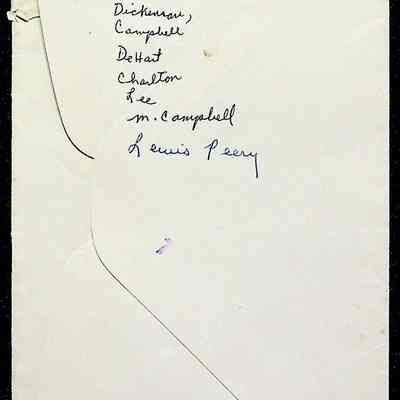 Dickenson,
Campbell
DeHart
Charlton
Lee
M. Campbell
Lewis Peery